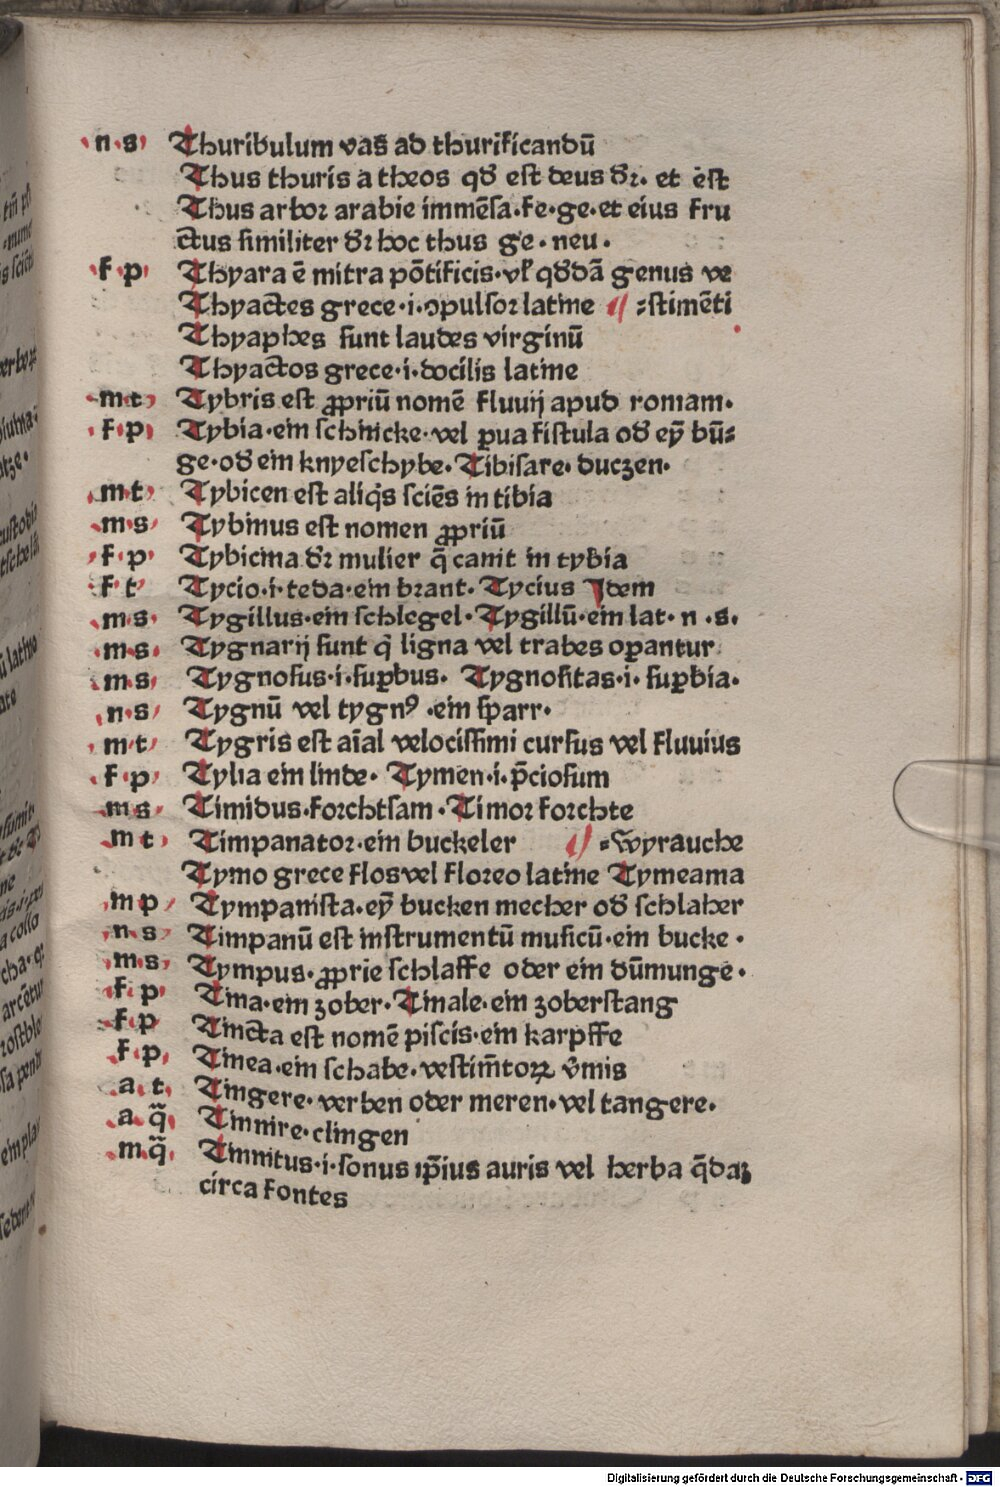 n·s· Thuribulum vas ad thurificandū
Thus thuris a theos qđ est deus dr̄· et est
Thus arbor arabie immēsa·fe·ge·et eius fru
ctus similiter dr̄ hoc thus ge·neu·
f·p· Thyara ē mitra pōtificis·vl' qđdā genus ve
Thyactes grece·i·ꝯpulsor latine ⸗stimēti
Thyaphes sunt laudes virginū
Thyactos grece·i·docilis latine
m·t· Tybris est ꝓpriū nomē fluuij apud romam·
f·p· Tybia·ein schincke·vel ꝑua fistula ođ ey̅ bū⸗
ge·ođ ein knyeschybe·Tibisare·duczen·
m·t· Tybicen est aliq̇s sciēs in tibia
m·s· Tybinus est nomen ꝓpriū
f·p· Tybicina dr̄ mulier q̄ canit in tybia
f·t· Tycio·i·teda·ein brant·Tycius Idem
m·s· Tygillus·ein schlegel·Tygillū·ein lat·n·s·
m·s· Tygnarij sunt q̇ ligna vel trabes oꝑantur
m·s· Tygnosus·i·suꝑbus·Tygnositas·i·suꝑbia·
n·s· Tygnū vel tygnꝰ·ein sparr·
m·t· Tygris est aīal velocissimi cursus vel fluuius
f·p· Tylia ein linde·Tymen·i·p̄ciosum
m·s· Timidus·forchtsam·Timor forchte
m·t· Timpanator·ein buckeler ⸗wyrauche
Tymo grece flos vel floreo latine Tymeama
m·p· Tympanista·ey̅ bucken mecher ođ schlaher
n·s· Timpanū est instrumentū musicū·ein bucke·
m·s· Tympus·ꝓprie schlaffe oder ein dūmunge·
f·p· Tina·ein zober·Tinale·ein zoberstang
f·p· Tincta est nomē piscis·ein karpffe
f·p· Tinea·ein schabe·vestim̄toꝝ v̄mis
a·t· Tingere·verben oder meren·vel tangere·
a·q̄· Tinnire·clingen
m·q̄· Tinnitus·i·sonus ip̄ius auris vel herba q̄daꝫ
circa fontes
Digitalisierung gefördert durch die Deutsche Forschungsgemeinschaft - DFG